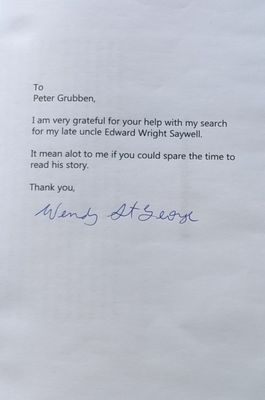 To
Peter Grubben,
I am very grateful for your help with my search
for my late uncle Edward Wright Saywell.
It mean alot to me if you could spare the time to
read his story.
Thank you,
Wendy St George